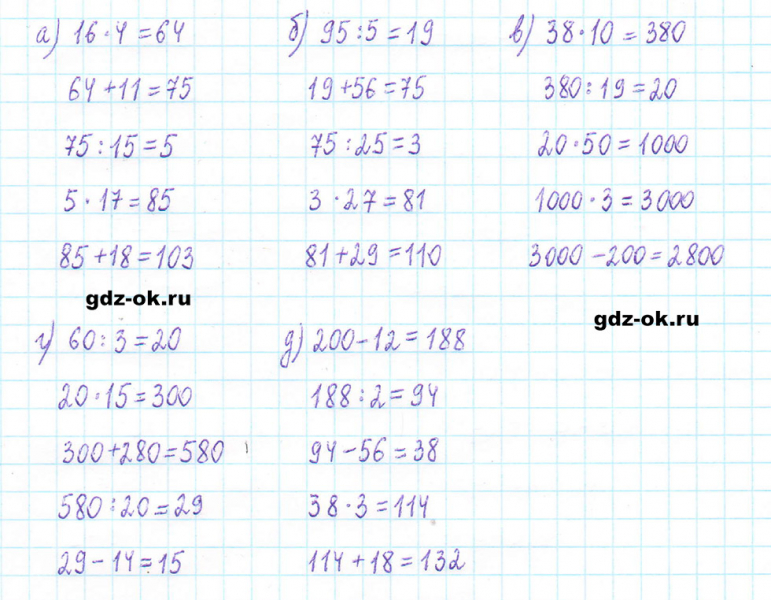 а) 16·4=64
64+11=75
75:15=5
5·17=85
85+18=103
б) 95:5=19
19+56=75
75:25=3
3·27=81
81+29=110
в) 38·10=380
380:19=20
20·50=1000
1000·3=3000
3000-200=2800
gdz-ok.ru
gdz-ok.ru
г) 60:3=20
20·15=300
300+280=580
580:20=29
29-14=15
д) 200-12=188
188:2=94
94-56=38
38·3=114
114+18=132